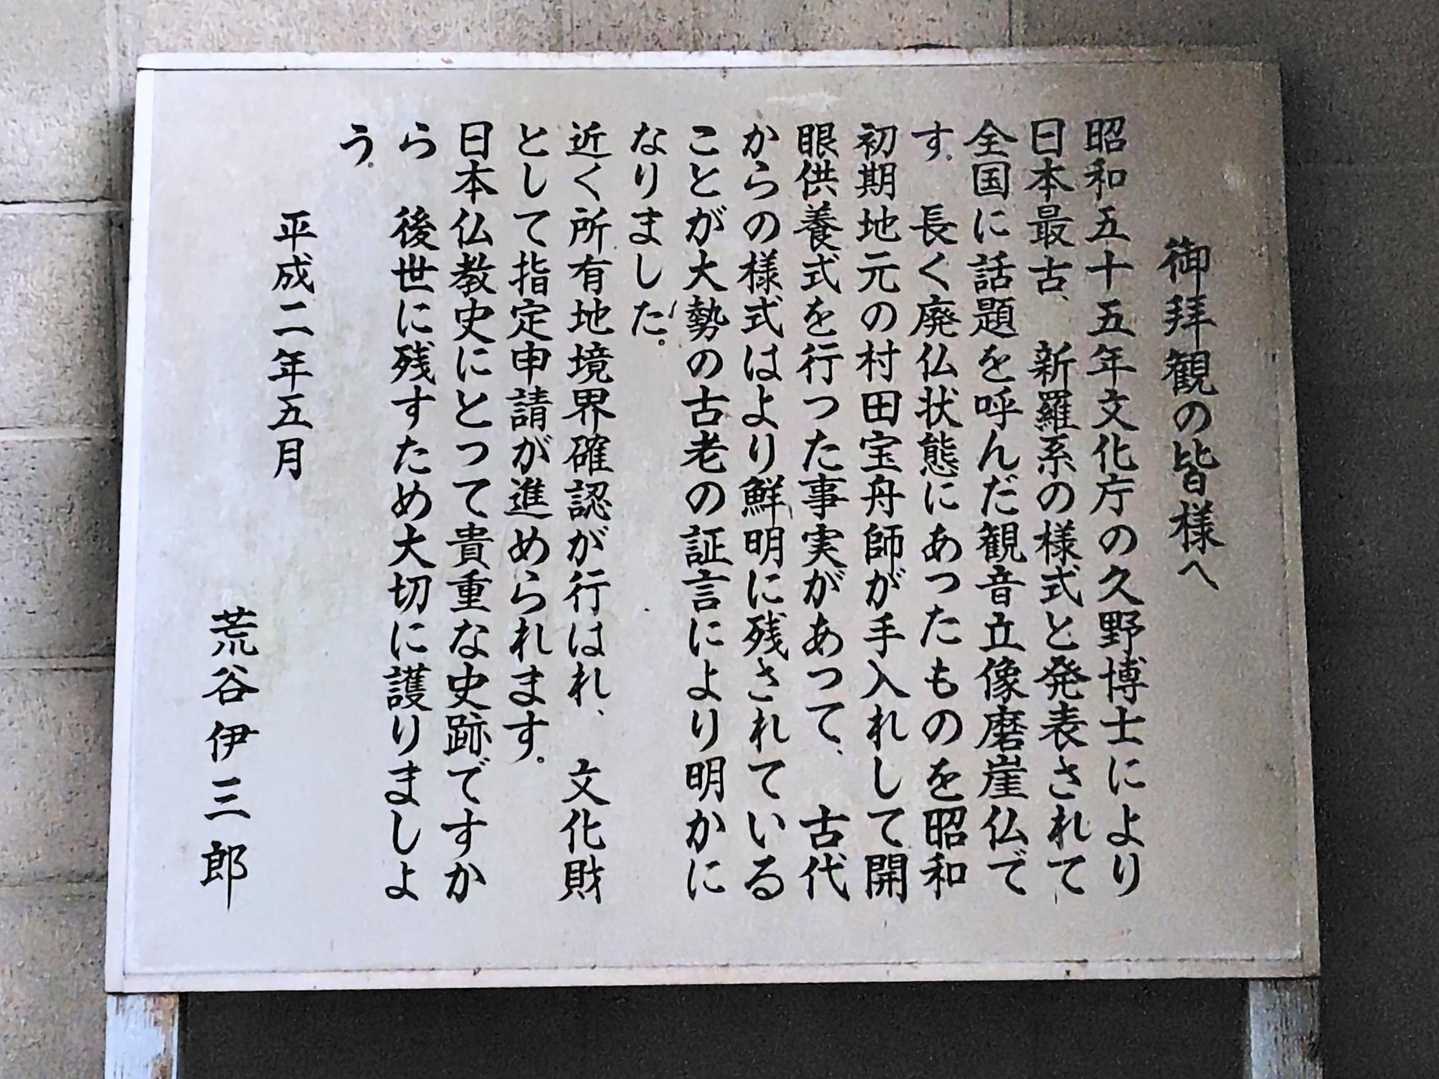 御拝観の皆様へ
昭和五十五年文化庁の久野博士により
日本最古、新羅系の様式と発表されて
全国に話題を呼んだ観音立像磨崖仏で
す。長く廃仏状態にあったものを昭和
初期地元の村田宝舟師が手入れして開
眼供養式を行った事実があって、古代
からの様式はより鮮明に残されている
ことが大勢の古老の証言により明かに
なりました。
近く所有地境界確認が行はれ、文化財
として指定申請が進められます。
日本仏教史にとって貴重な史跡ですか
ら後世に残すため大切に護りましょ
う。
平成二年五月
荒谷伊三郎